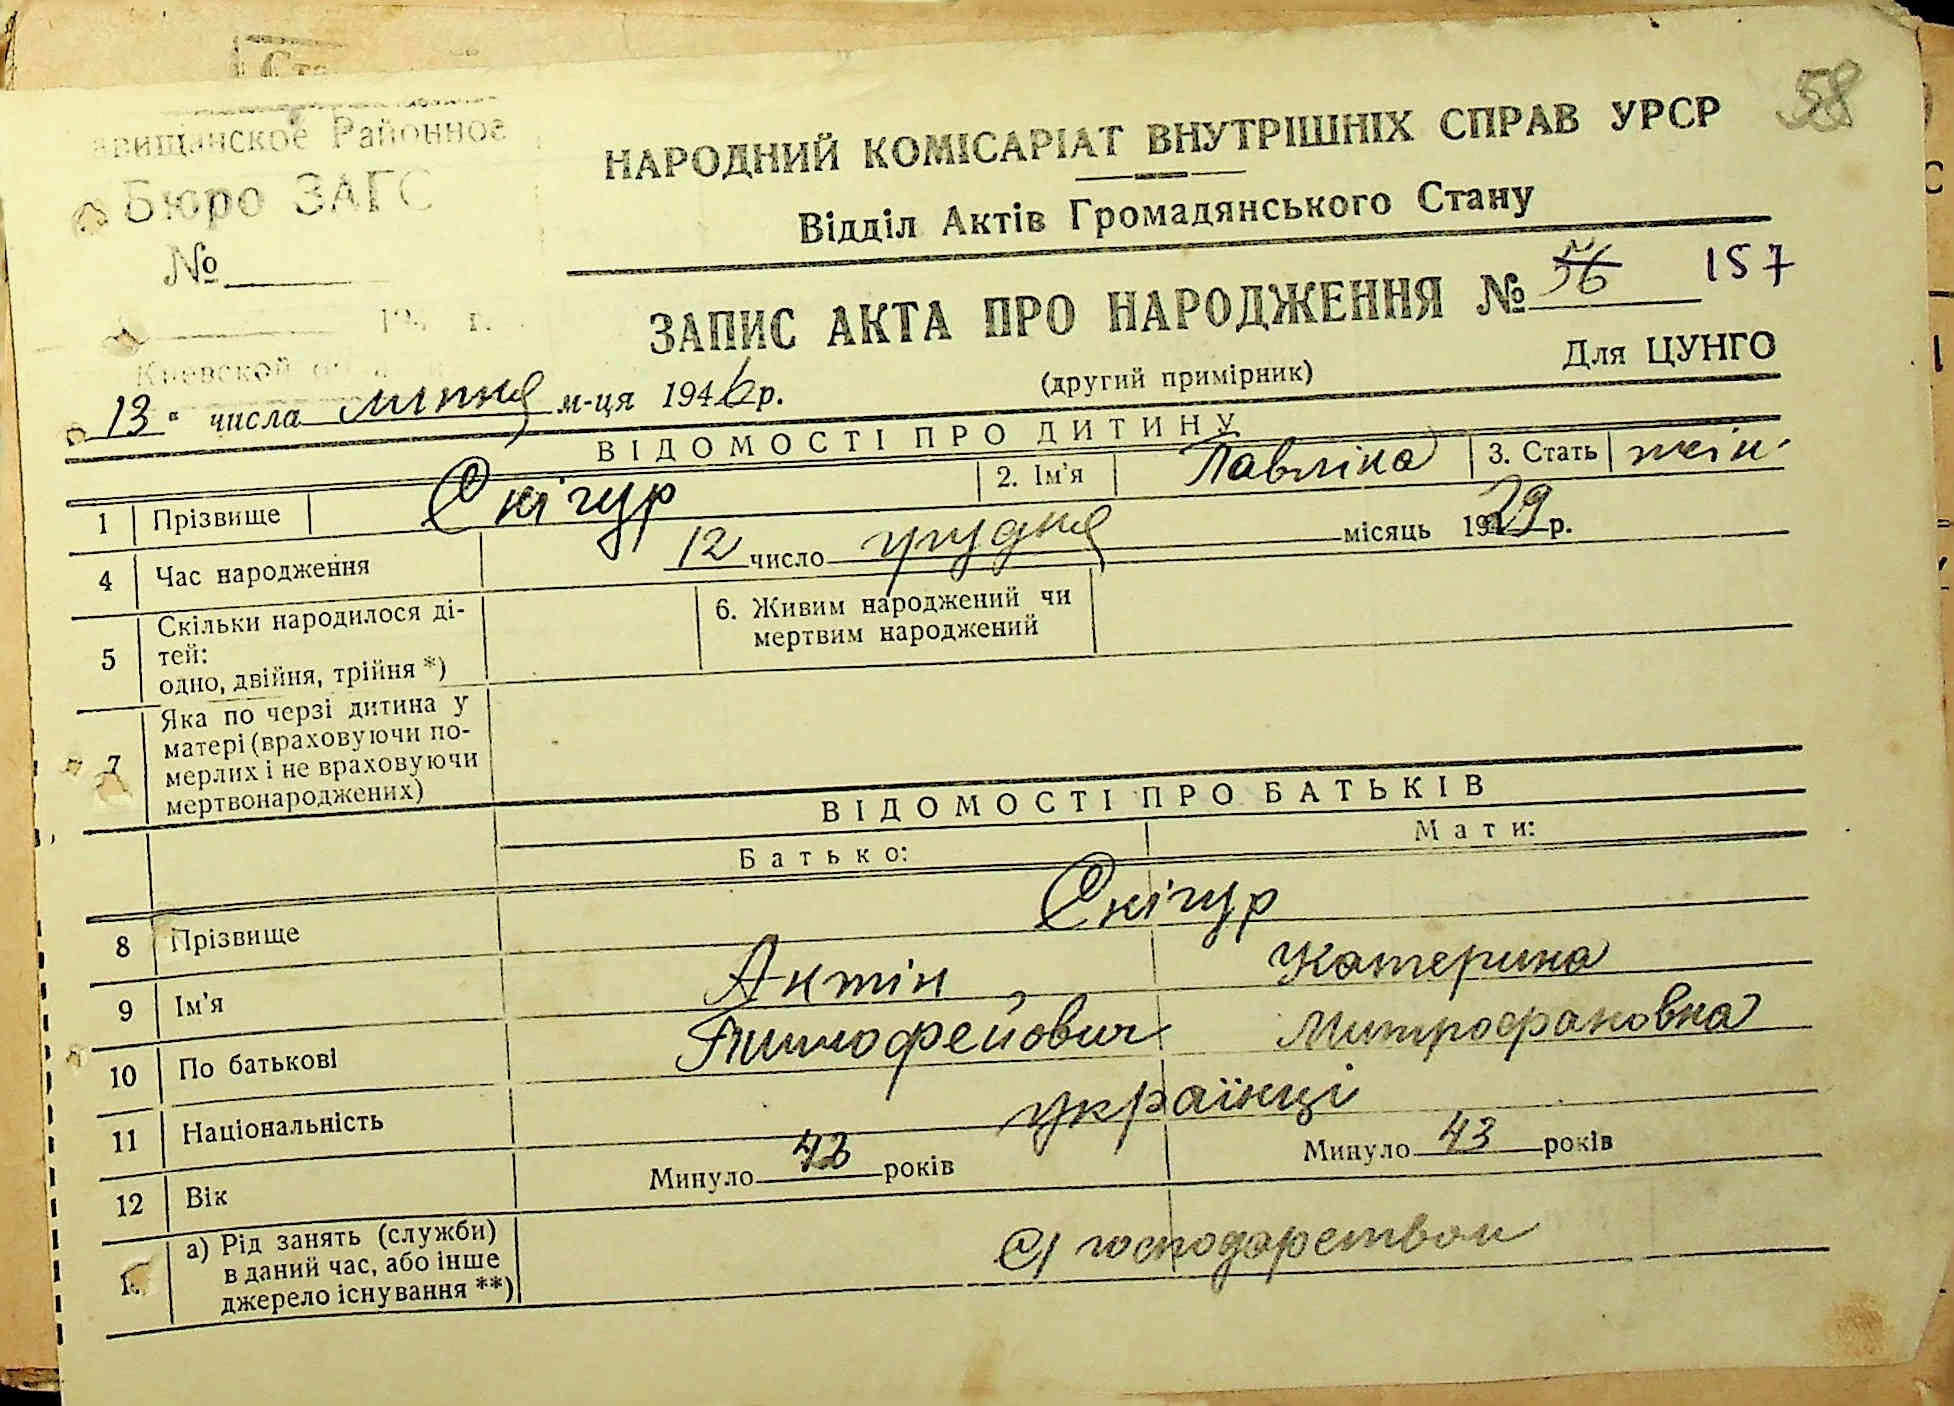 58
Районное
Бюро ЗАГС
№
НАРОДНИЙ КОМІСАРІАТ ВНУТРІШНІХ СПРАВ УРСР
Відділ Актів Громадянського Стану
ЗАПИС АКТА ПРО НАРОДЖЕННЯ № 56 157
(другий примірник) Для ЦУНГО
Киевской
13 " числа липня м-ця 1946 р.
ВІДОМОСТІ ПРО ДИТИНУ
1 Прізвище Снігур 2. Ім'я Павліна 3. Стать жін.
4 Час народження 12 число грудня місяць 1929 р.
5 Скільки народилося ді-
тей:
одно, двійня, трійня *)
6. Живим народжений чи
мертвим народжений
7 Яка по черзі дитина у
матері (враховуючи по-
мерлих і не враховуючи
мертвонароджених)
ВІДОМОСТІ ПРО БАТЬКІВ
Батько: Мати:
8 Прізвище Снігур
9 Ім'я Антін Катерина
10 По батькові Тимофейович Митрофановна
11 Національність українці
12 Вік Минуло 43 років Минуло 43 років
а) Рід занять (служби)
в даний час, або інше
джерело існування **)
С/господарством